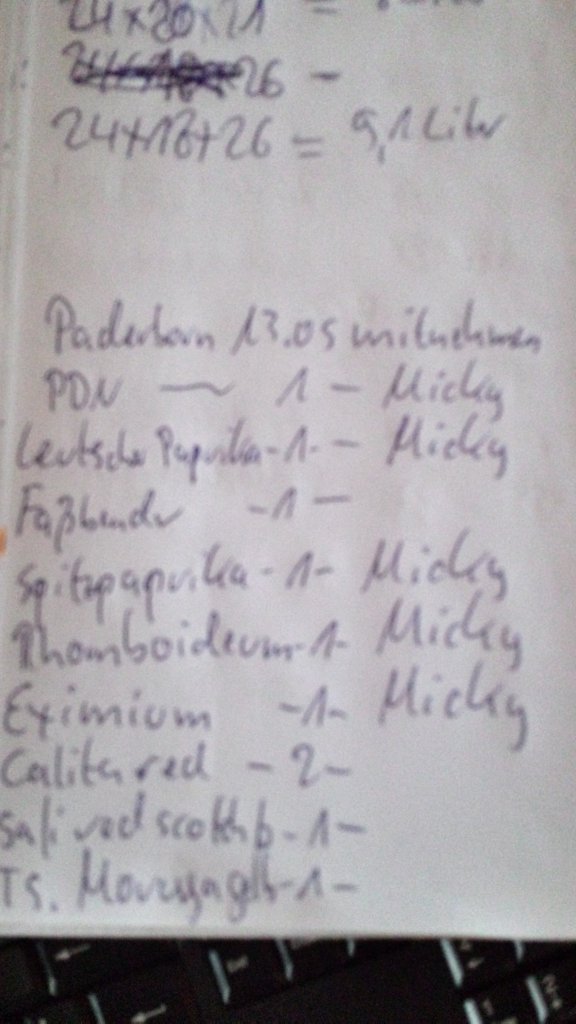 24x20x21 =
26 -
24+18+26 = 9,1 Liter
Paderborn 13.05 mitnehmen
PDN — 1 - Micky
Leutscher Paprika - 1 - Micky
Faßbender - 1 -
Spitzpaprika - 1 - Micky
Rhomboideum - 1 - Micky
Eximium - 1 - Micky
Calita red - 2 -
Safi red scotch b - 1 -
TS. - 1 -